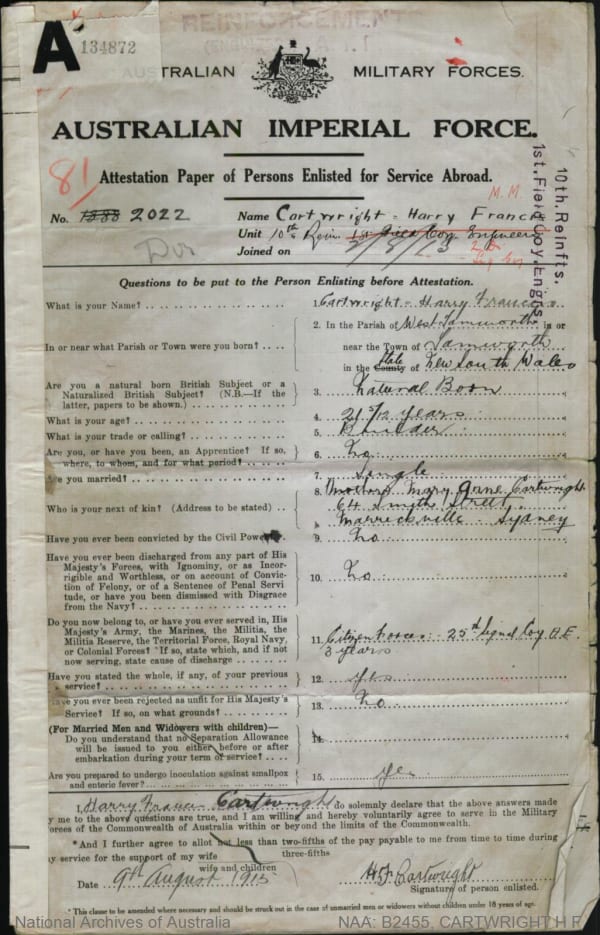 REINFORCEMENTS
A 134872
AUSTRALIAN MILITARY FORCES.
AUSTRALIAN IMPERIAL FORCE.
81
Attestation Paper of Persons Enlisted for Service Abroad.
10th. Reinfts.
1st. Field Coy. Engrs
M.M.
No. 1888 2022
Name Cartwright - Harry Francis
Unit 10th Rein. 1st Field Coy. Engineers
Joined on
Questions to be put to the Person Enlisting before Attestation.
What is your Name? 1. Cartwright - Harry Francis
In or near what Parish or Town were you born? 2. In the Parish of West Tamworth in or
near the Town of Tamworth
in the County State of New South Wales
Are you a natural born British Subject or a
Naturalized British Subject? (N.B.—If the
latter, papers to be shown.) 3. Natural Born
What is your age? 4. 21 5/12 years
What is your trade or calling? 5.
Are you, or have you been, an Apprentice? If so,
where, to whom, and for what period? 6. No
Are you married? 7. Single
Who is your next of kin? (Address to be stated) 8. Mother: Mary Anne Cartwright
64 Smith Street
Marrickville Sydney
Have you ever been convicted by the Civil Power? 9. No
Have you ever been discharged from any part of His
Majesty's Forces, with Ignominy, or as Incor-
rigible and Worthless, or on account of Convic-
tion of Felony, or of a Sentence of Penal Servi
tude, or have you been dismissed with Disgrace
from the Navy? 10. No
Do you now belong to, or have you ever served in, His
Majesty's Army, the Marines, the Militia, the
Militia Reserve, the Territorial Force, Royal Navy,
or Colonial Forces? If so, state which, and if not
now serving, state cause of discharge 11. Citizen Forces: 25th Signal Coy A.E.
3 years
Have you stated the whole, if any, of your previous
service? 12. yes
Have you ever been rejected as unfit for His Majesty's
Service? If so, on what grounds? 13. No
(For Married Men and Widowers with children)—
Do you understand that no Separation Allowance
will be issued to you either before or after
embarkation during your term of service? 14.
Are you prepared to undergo inoculation against smallpox
and enteric fever? 15. yes
I, Harry Francis Cartwright do solemnly declare that the above answers made
by me to the above questions are true, and I am willing and hereby voluntarily agree to serve in the Military
Forces of the Commonwealth of Australia within or beyond the limits of the Commonwealth.
*And I further agree to allot not less than two-fifths of the pay payable to me from time to time during
three-fifths
my service for the support of my wife
wife and children
Date 9th August 1915
H.F. Cartwright
Signature of person enlisted.
* This clause to be amended where necessary and should be struck out in the case of unmarried men or widowers without children under 18 years of age.
National Archives of Australia
NAA: B2455, CARTWRIGHT H F